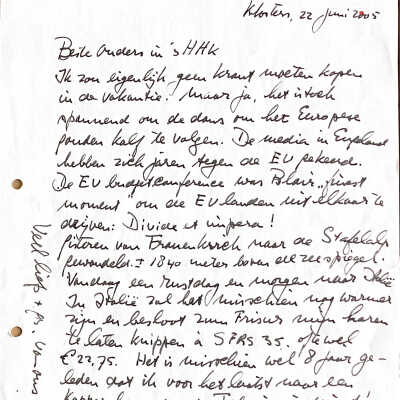 Klosters, 22 juni 2005
Beide ouders in 's HHK
Ik zou eigenlijk geen krant moeten kopen
in de vakantie. Maar ja, het is toch
spannend om de dans om het Europese
gouden kalf te volgen. De media in Engeland
hebben zich jaren tegen de EU gekeerd.
De EU budgetconference was Blair "finest
moment" om de EU landen uit elkaar te
drijven: Divide et impera!
Gisteren van Frauenkirch naar de Stafelalp
gewandeld. ± 1890 meter boven de zeespiegel.
Vandaag een rustdag en morgen naar Italië
In Italië zal het misschien nog warmer
zijn en besloot zum Friseur mijn haren
te laten knippen à SFRS 35. ofte wel
€ 22,75. Het is misschien wel 8 jaar ge-
leden dat ik voor het laatst naar een
Veel liefs + gr. van ons